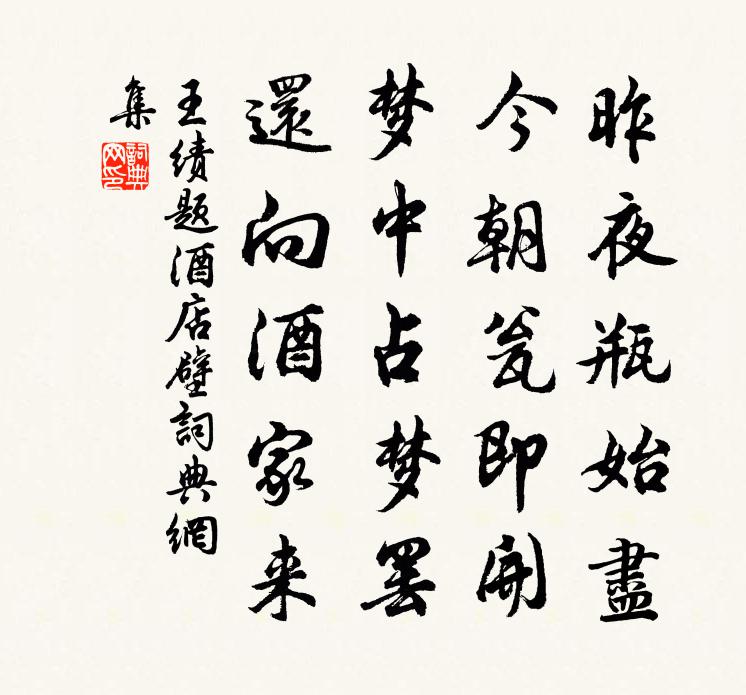 昨夜瓶始盡
今朝瓮即開
梦中占梦罢
還向酒家来
王績题酒店壁詞典網
集
詞典网印